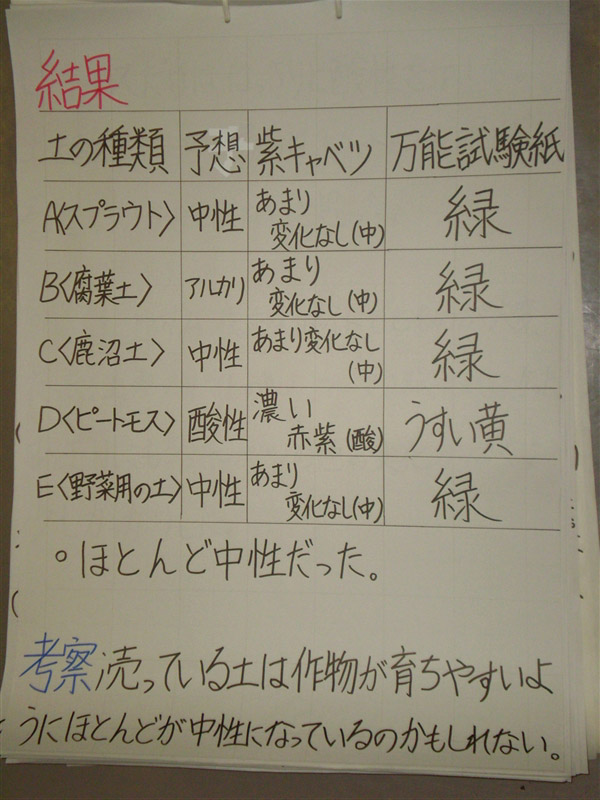 結果
土の種類 予想 紫キャベツ 万能試験紙
A〈スプラウト〉 中性 あまり 緑
変化なし(中)
B〈腐葉土〉 アルカリ あまり 緑
変化なし(中)
C〈鹿沼土〉 中性 あまり変化なし 緑
(中)
D〈ピートモス〉 酸性 濃い うすい黄
赤紫(酸)
E〈野菜用の土〉 中性 あまり 緑
変化なし(中)
。ほとんど中性だった。
考察 売っている土は作物が育ちやすいよ
うにほとんどが中性になっているのかもしれない。